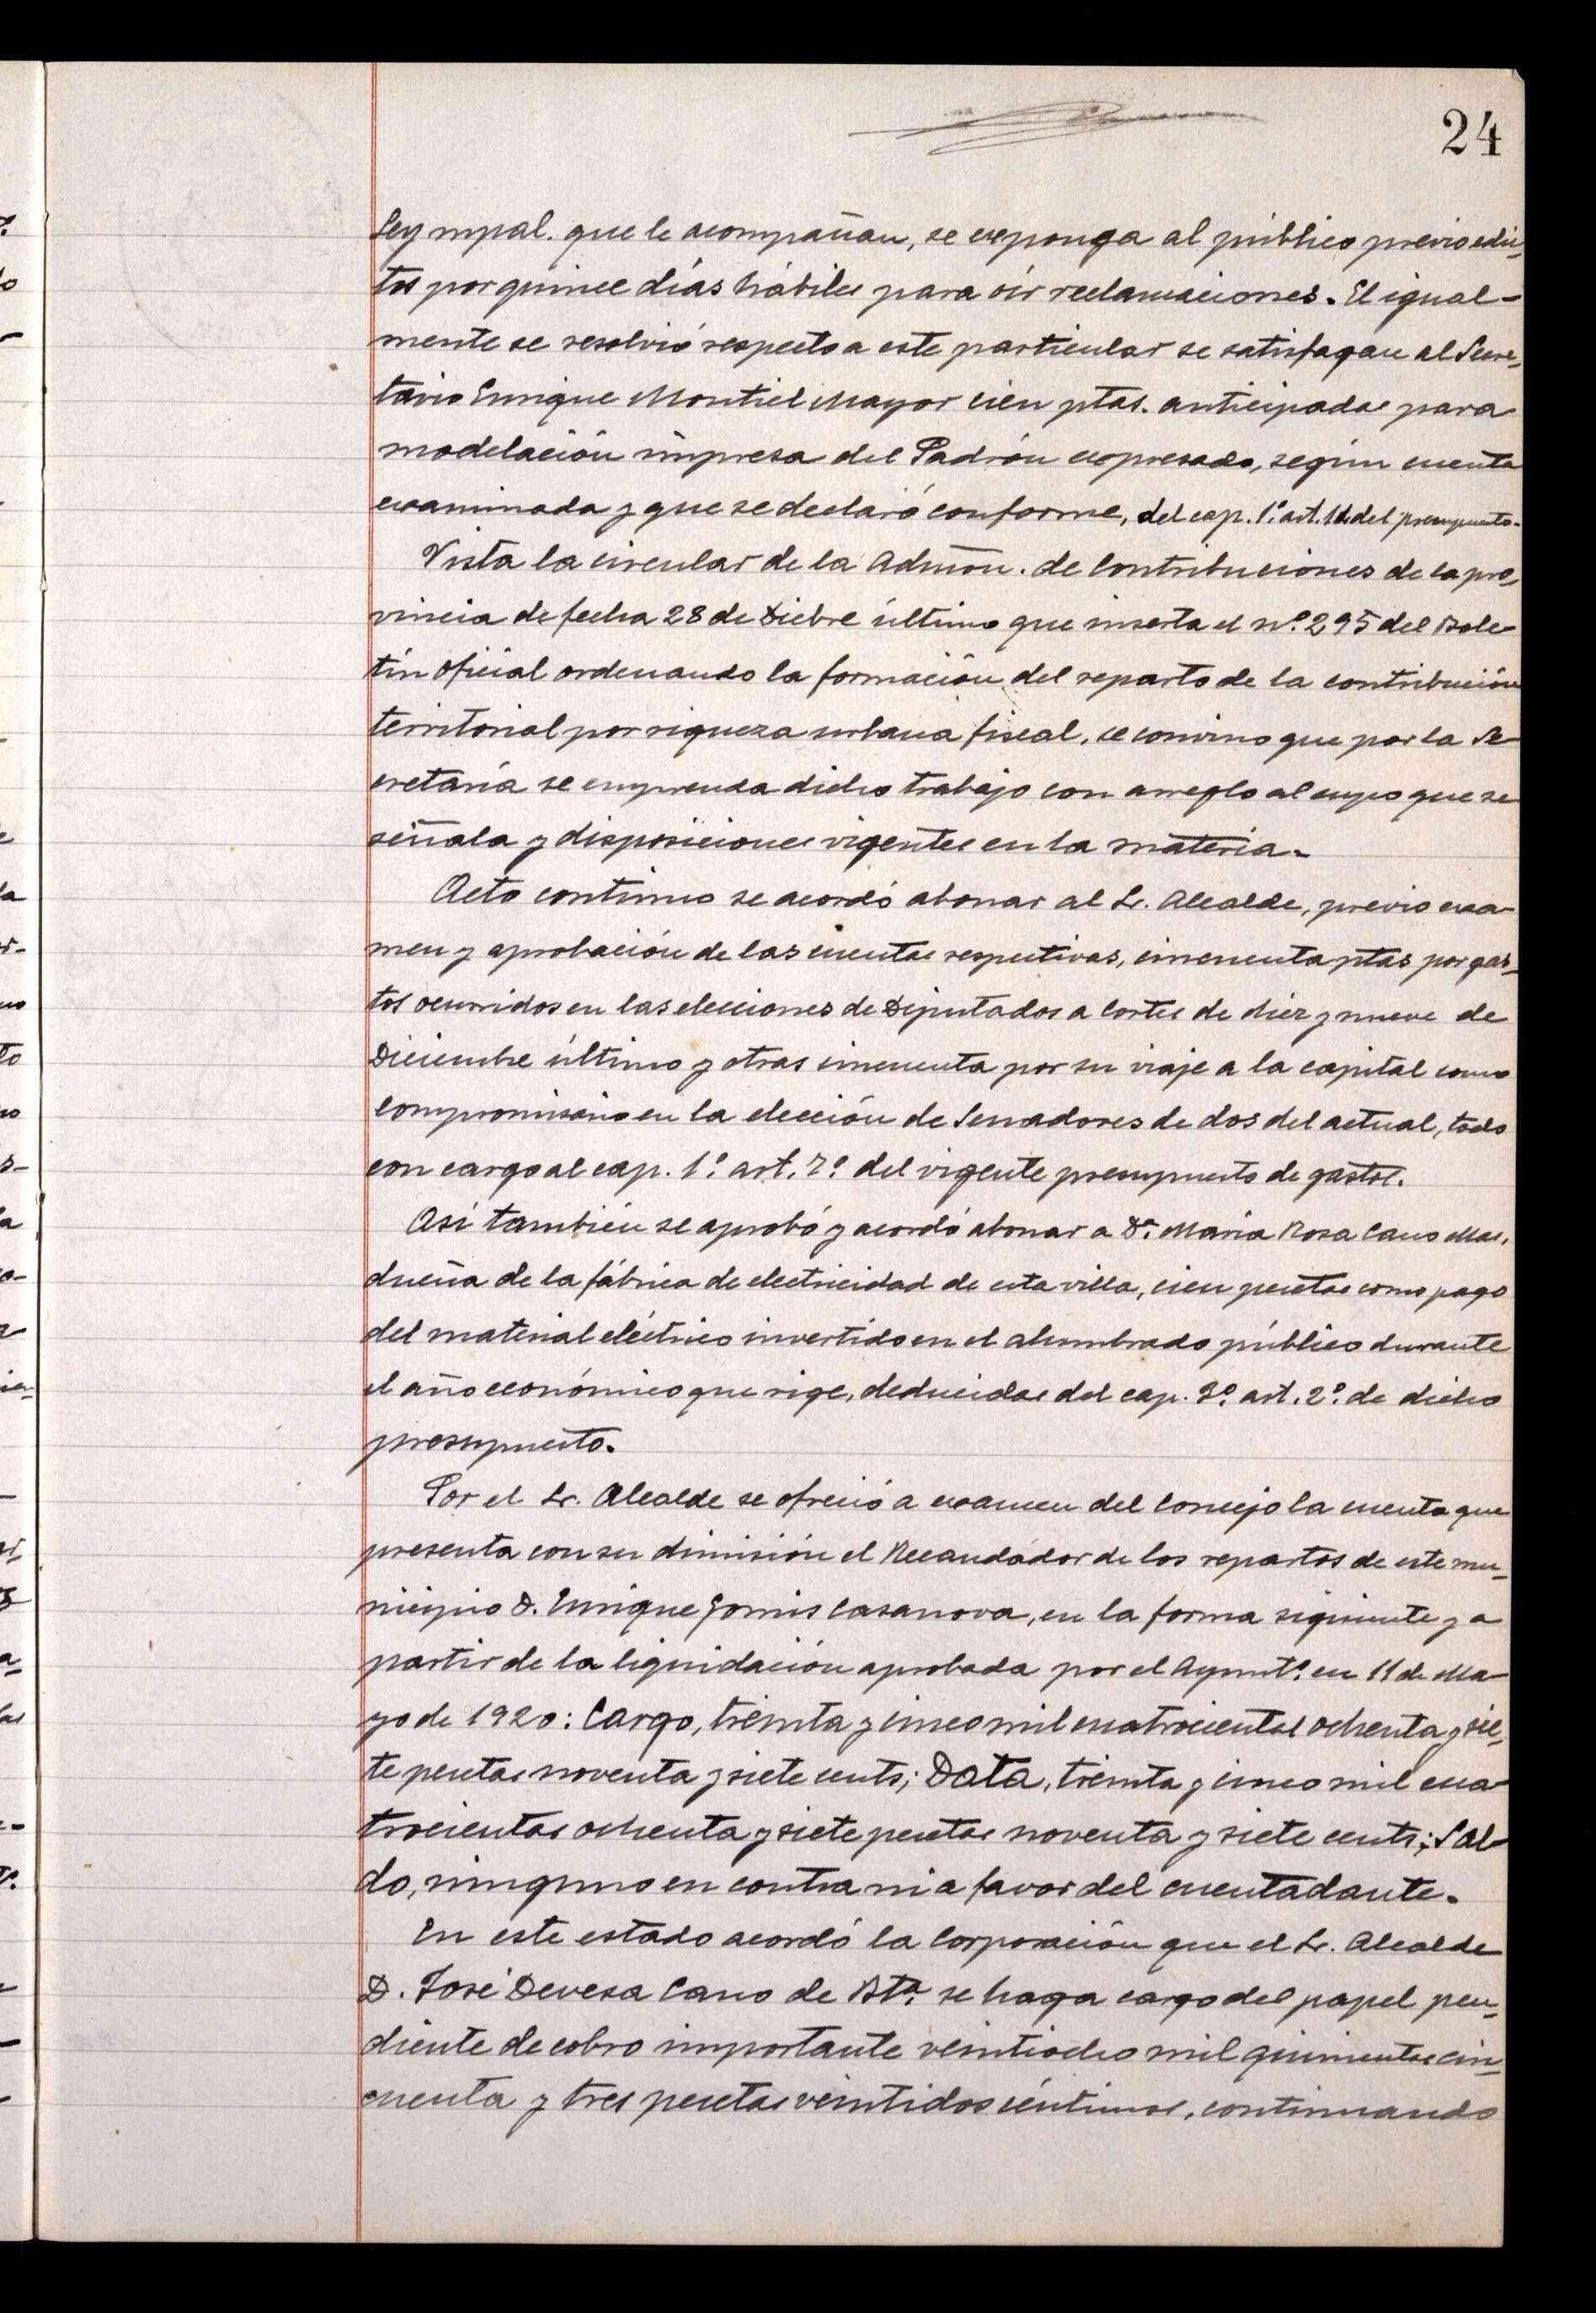 24
Ley mpal. que le acompañan, se exponga al público previo edic-
tos por quince días hábiles para oír reclamaciones. El igual-
mente se resolvió respecto a este particular se satisfagan al Secre-
tario Enrique Montiel Mayor cien ptas. anticipadas para
modelación impresa del Padrón expresado, según cuenta
examinada y que se declaró conforme, del cap. 1º art. 11 del presupuesto.
Vista la circular de la Admón. de Contribuciones de la pro-
vincia de fecha 28 de Dicbre último que inserta el nº 295 del Bole-
tín Oficial ordenando la formación del reparto de la contribución
territorial por riqueza urbana fiscal, se convino que por la Se-
cretaría se emprenda dicho trabajo con arreglo al cupo que se
señala y disposiciones vigentes en la materia.
Acto continuo se acordó abonar al Sr. Alcalde, previo exa-
men y aprobación de las cuentas respectivas, cincuenta ptas por gas-
tos ocurridos en las elecciones de Diputados a Cortes de diez y nueve de
Diciembre último y otras cincuenta por su viaje a la capital como
Compromisario en la elección de Senadores de dos del actual, todo
con cargo al cap. 1º art. 7º del vigente presupuesto de gastos.
Así también se aprobó y acordó abonar a Dª Maria Rosa Cano Mas,
dueña de la fábrica de electricidad de esta villa, cien pesetas como pago
del material eléctrico invertido en el alumbrado público durante
el año económico que rige, deducidas del cap. 3º art. 2º de dicho
presupuesto.
Por el Sr. Alcalde se ofreció a examen del Concejo la cuenta que
presenta con su dimisión el Recaudador de los repartos de este mu-
nicipio D. Enrique Gomis Casanova, en la forma siguiente y a
partir de la liquidación aprobada por el Ayuntº en 11 de Ma-
yo de 1920: Cargo, treinta y cinco mil cuatrocientas ochenta y sie-
te pesetas noventa y siete cents; Data, treinta y cinco mil cua-
trocientas ochenta y siete pesetas noventa y siete cents; Sal-
do, ninguno en contra ni a favor del cuentadante.
En este estado acordó la Corporación que el Sr. Alcalde
D. José Devesa Cano de Btª se haga cargo del papel pen-
diente de cobro importante veintiocho mil quinientas cin-
cuenta y tres pesetas veintidos céntimos, continuando